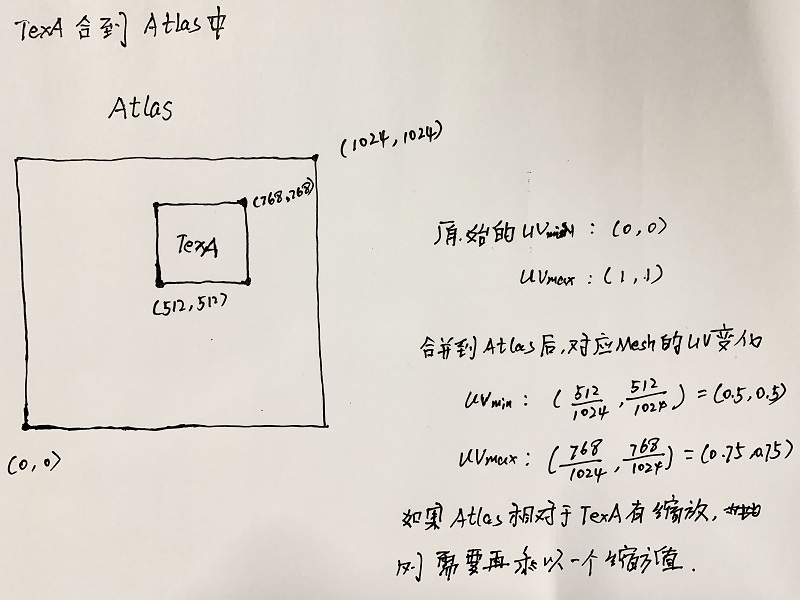 TexA 合到 Atlas中
Atlas
(1024, 1024)
(768,768)
TexA
(512, 512)
(0, 0)
原始的 UVmin : (0, 0)
UVmax : (1, 1)
合并到 Atlas 后,对应Mesh的UV变化
UVmin : ( 512/1024 , 512/1024 ) = (0.5, 0.5)
UVmax : ( 768/1024 , 768/1024 ) = (0.75, 0.75)
如果 Atlas 相对于 TexA 有缩放,
则需要再乘以一个缩放值.